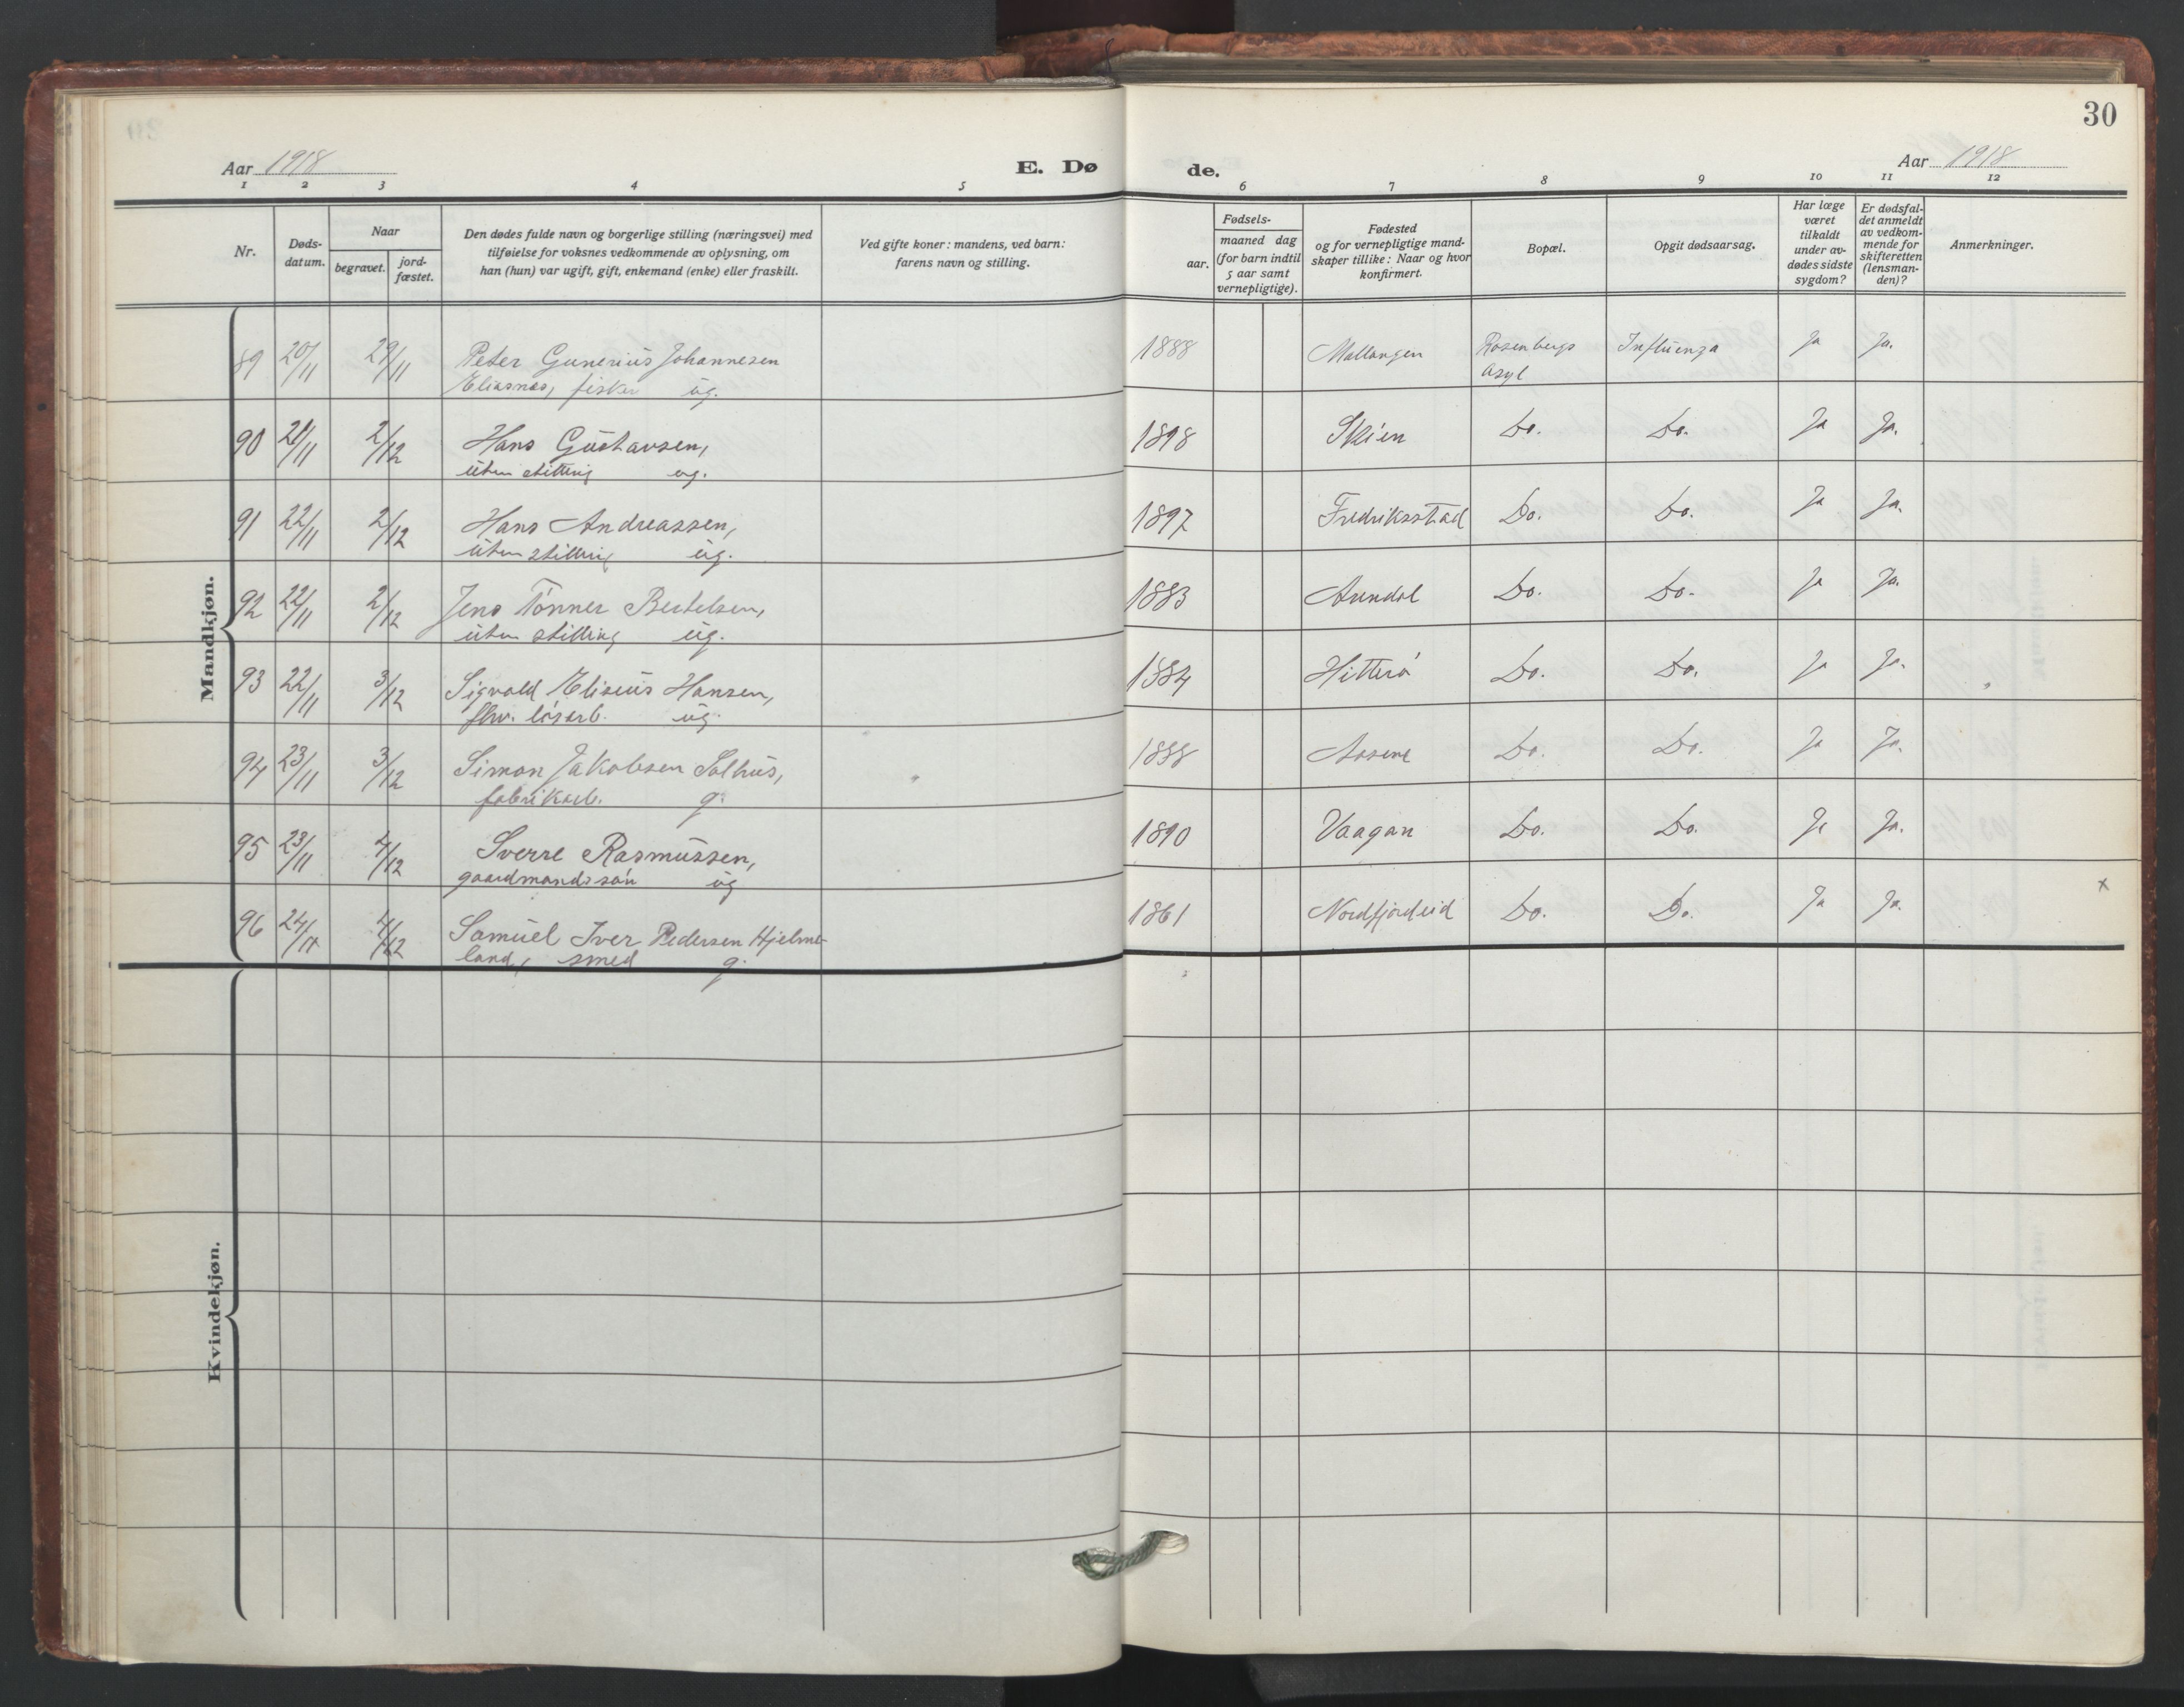 30
Aar 1918
E. Dø
de.
Aar 1918
1 2 3 4 5 6 7 8 9 10 11 12
Nr.
Døds-
datum.
Naar
begravet.
jord-
fæstet.
Den dødes fulde navn og borgerlige stilling (næringsvei) med
tilføielse for voksnes vedkommende av oplysning, om
han (hun) var ugift, gift, enkemand (enke) eller fraskilt.
Ved gifte koner: mandens, ved barn:
farens navn og stilling.
Fødsels-
aar.
maaned dag
(for barn indtil
5 aar samt
vernepligtige).
Fødested
og for vernepligtige mand-
skaper tillike: Naar og hvor
konfirmert.
Bopæl.
Opgit dødsaarsag.
Har læge
været
tilkaldt
under av-
dødes sidste
sygdom?
Er dødsfal-
det anmeldt
av vedkom-
mende for
skifteretten
(lensman-
den)?
Anmerkninger.
Mandkjøn.
89 20/11 29/11 Peter Gunerius Johannesen 1888 Mallangen Rosenbergs Influenza Ja Ja.
Eliasnes, fisker ug. Asyl
90 21/11 2/12 Hans Gustavsen, 1898 Skien Do. Do. Ja Ja.
uten stilling ug.
91 22/11 2/12 Hans Andreassen, 1897 Fredriksstad Do. Do. Ja Ja.
uten stilling ug.
92 22/11 2/12 Jens Tönner Bertelsen, 1883 Arendal Do. Do. Ja Ja.
uten stilling ug.
93 22/11 3/12 Sigvald Elisius Hansen, 1884 Hitterö Do. Do. Ja Ja.
fhv. lösarb. ug.
94 23/11 3/12 Simon Jakobsen Solhus, 1888 Aasene Do. Do. Ja Ja.
fabrikarb. g.
95 23/11 4/12 Sverre Rasmussen, 1890 Vaagan Do. Do. Ja Ja.
gaardmandssön ug
96 24/11 4/12 Samuel Iver Pedersen Hjelme- 1861 Nordfjordeid Do. Do. Ja Ja. x
land, smed g.
Kvindekjøn.